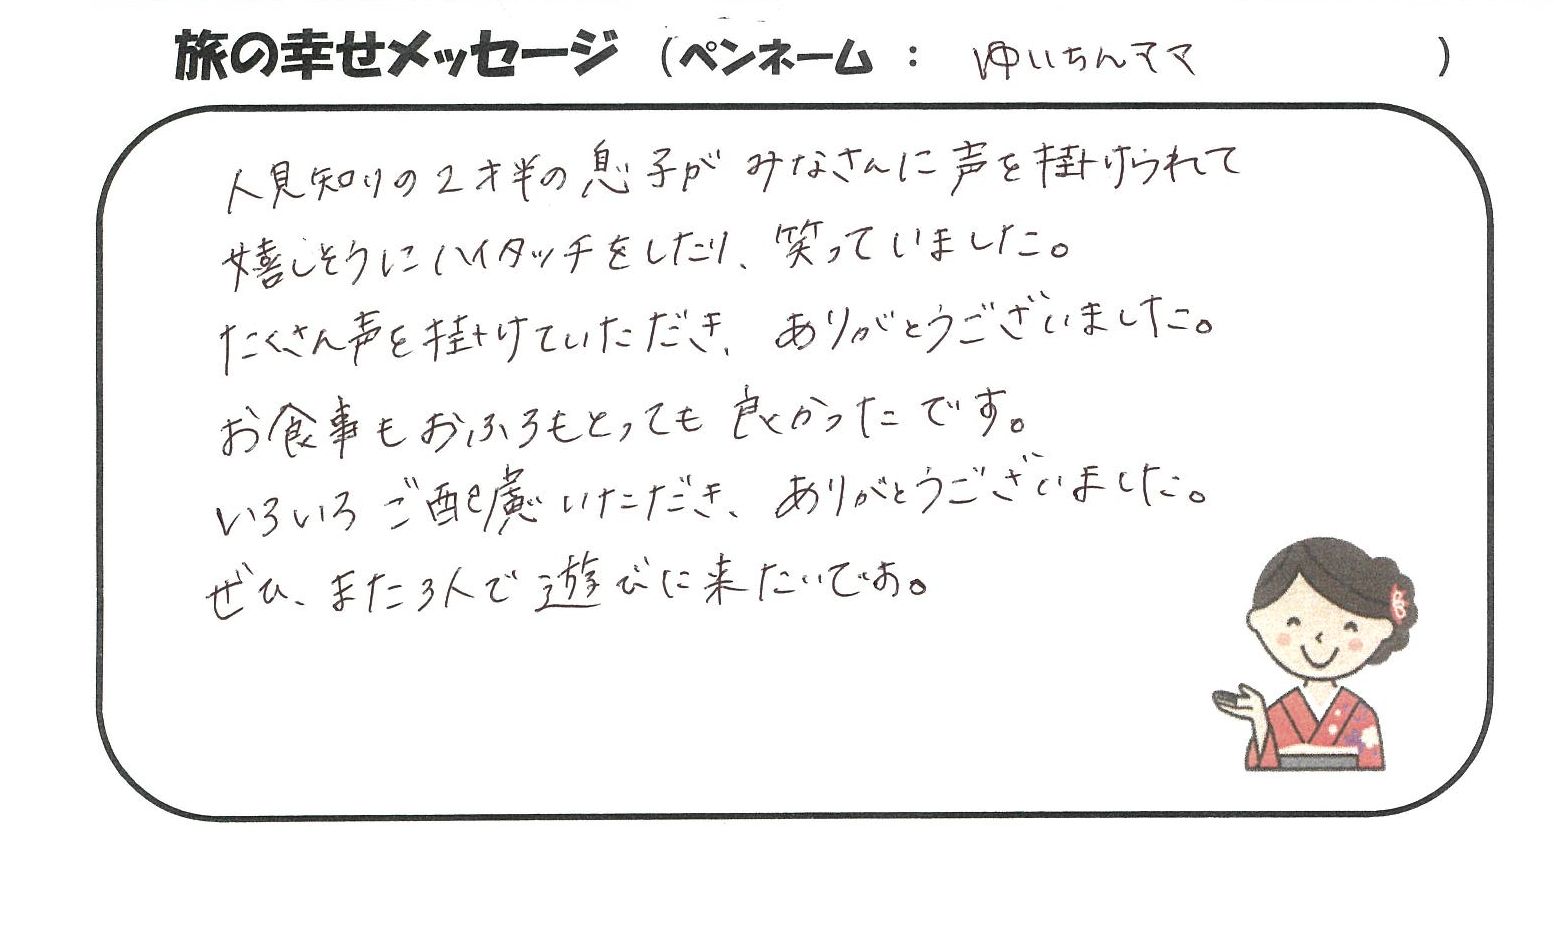 旅の幸せメッセージ（ペンネーム： ゆいちんママ ）
人見知りの2才半の息子がみなさんに声を掛けられて
嬉しそうにハイタッチをしたり、笑っていました。
たくさん声を掛けていただき、ありがとうございました。
お食事もおふろもとっても良かったです。
いろいろご配慮いただき、ありがとうございました。
ぜひ、また3人で遊びに来たいです。